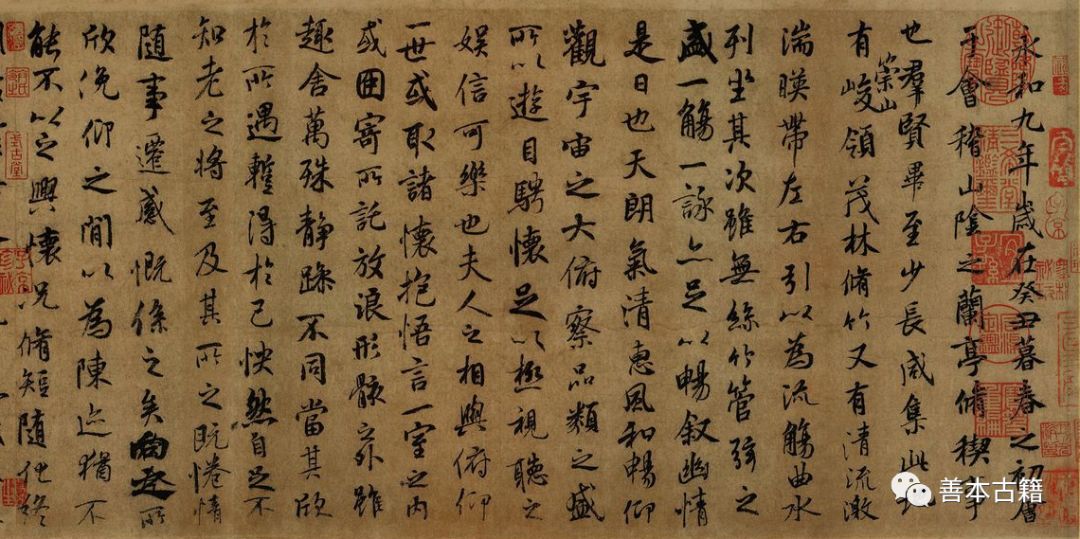 永和九年歲在癸丑暮春之初會
于會稽山陰之蘭亭脩稧事
也羣賢畢至少長咸集此地
崇山
有峻領茂林脩竹又有清流激
湍暎帶左右引以為流觴曲水
列坐其次雖無絲竹管弦之
盛一觴一詠亦足以暢叙幽情
是日也天朗氣清惠風和暢仰
觀宇宙之大俯察品類之盛
所以遊目騁懷足以極視聽之
娛信可樂也夫人之相與俯仰
一世或取諸懷抱悟言一室之內
或因寄所託放浪形骸之外雖
趣舍萬殊靜躁不同當其欣
於所遇蹔得於己怏然自足不
知老之將至及其所之既惓情
隨事遷感慨係之矣向之所
欣俛仰之閒以為陳迹猶不
能不以之興懷況脩短隨化終
善本古籍